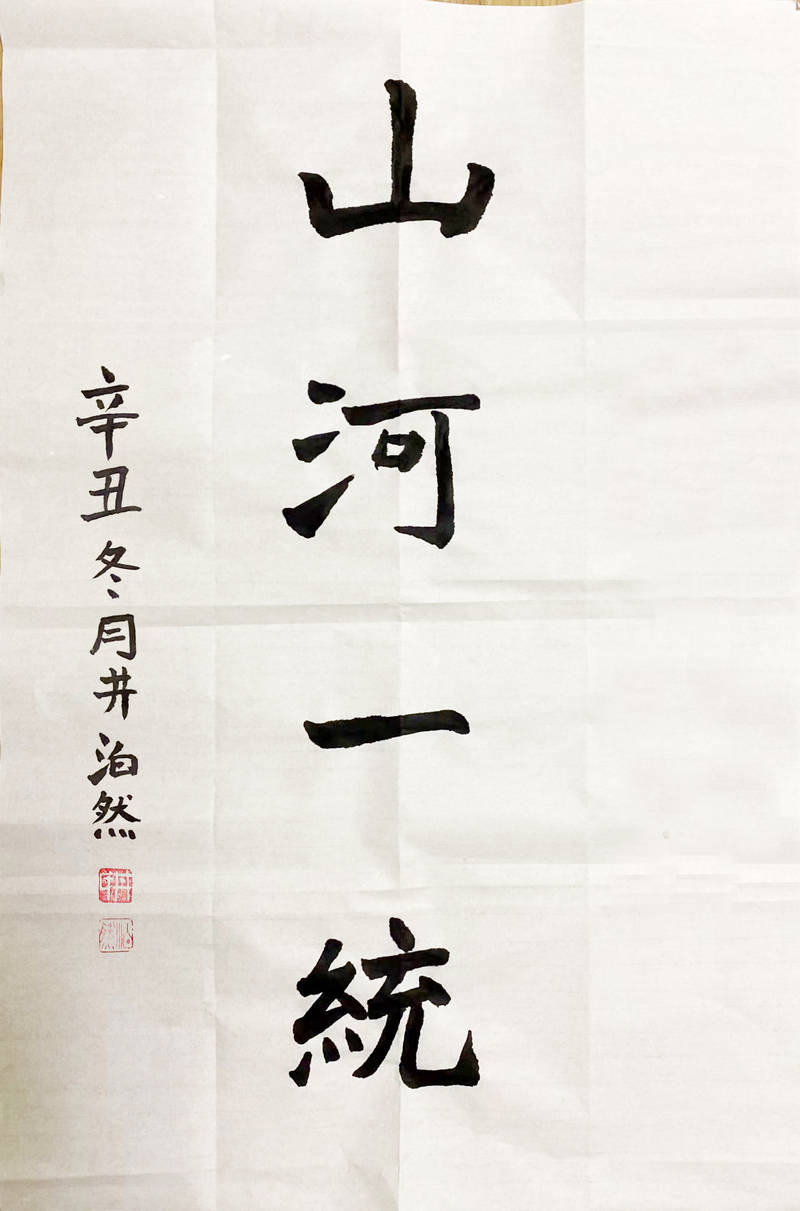 山河一統
辛丑冬月井泊然